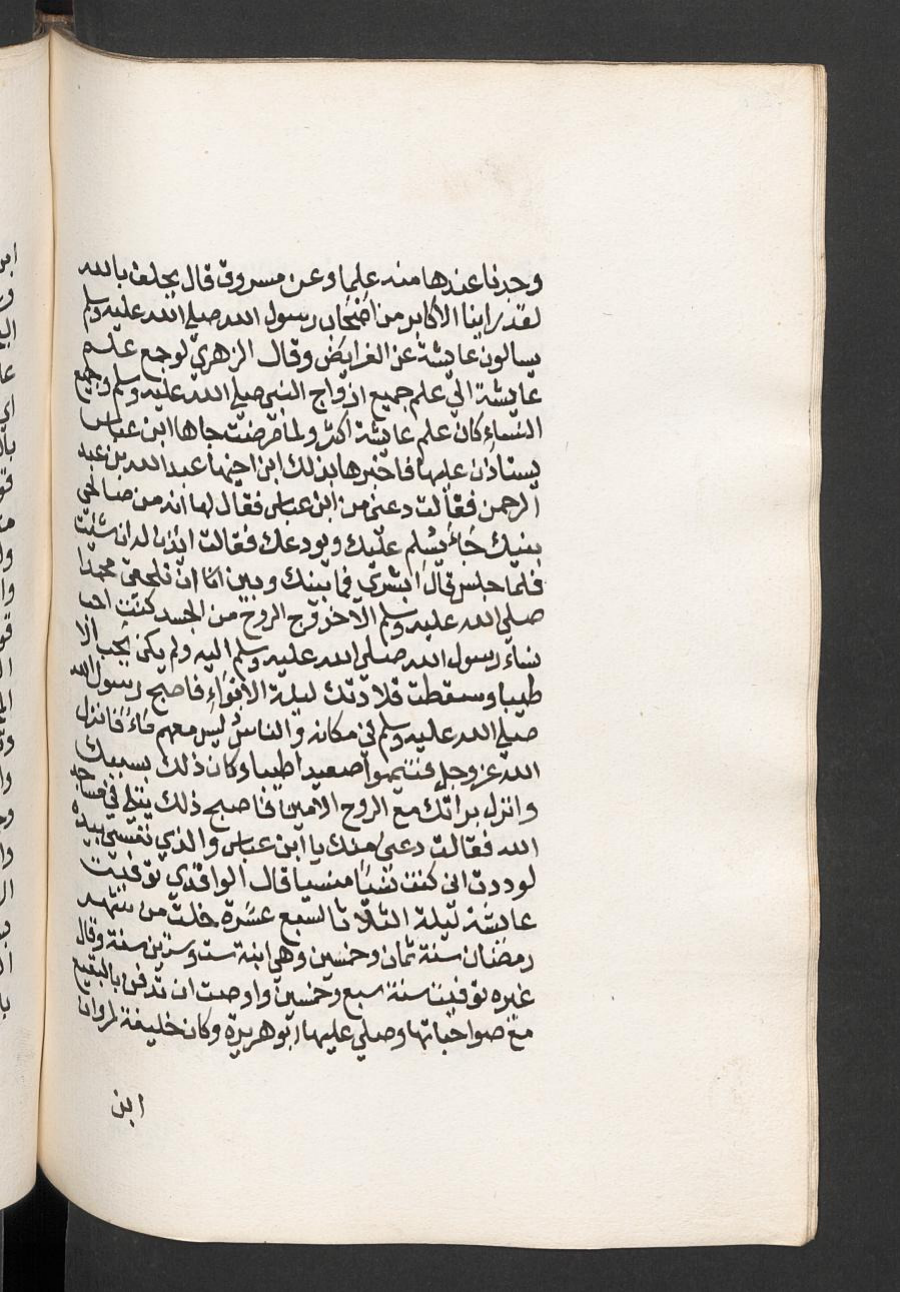 وجدنا عندها منه علما وعن مسروق قال يحلف بالله
لقد راينا الاكابر من اصحاب رسول الله صلى الله عليه وسلم
يسالون عايشة عن الفرايض وقال الزهري لو جمع علم
عايشة الي علم جميع ازواج النبي صلي الله عليه وسلم وجميع
النساء كان علم عايشة اكثر ولما مرضت جاها ابن عباس
يستاذن عليها فاخبرها بذلك ابن اخيها عبد الله بن عبد
الرحمن فقالت دعني من ابن عباس فقال لها انه من صالحي
بنيك جاء يسلم عليك ويودعك فقالت ايذن له ان شئت
فلما جلس قال ابشري فما بينك وبين ان تلحقي محمدا
صلي الله عليه وسلم الا خروج الروح من الجسد كنت احب
نساء رسول الله صلي الله عليه وسلم اليه ولم يكن يحب الا
طيبا وسقطت قلادتك ليلة الابواء فاصبح رسول الله
صلي الله عليه وسلم في مكانه والناس ليس معهم ماء فانزل
الله عز وجل فتيمموا صعيدا طيبا وكان ذلك بسببك
وانزل براتك مع الروح الامين فاصبح ذلك يتلي في مساجد
الله فقالت دعني منك يا ابن عباس والذي نفسي بيده
لوددت اني كنت نسيا منسيا قال الواقدي توفيت
عايشة ليلة الثلاثا لسبع عشرة خلت من شهر
رمضان سنة ثمان وخمسين وهي ابنة ست وستين سنة وقال
غيره توفيت سنة سبع وخمسين واوصت ان تدفن بالبقيع
مع صواحباتها وصلي عليها ابو هريرة وكان خليفة لمروان
ابن